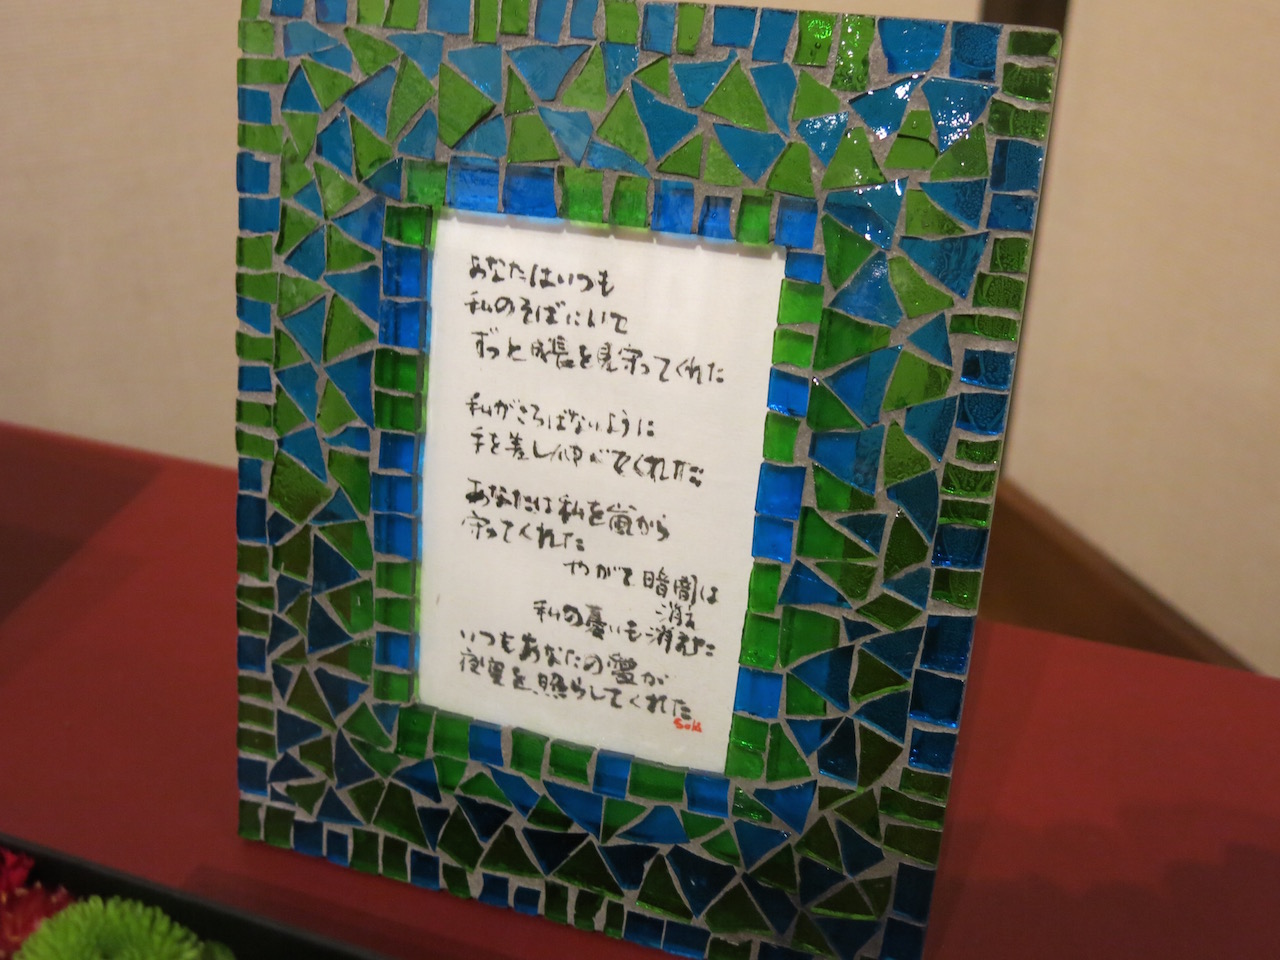 あなたはいつも
私のそばにいて
ずっと成長を見守ってくれた
私がころばないように
手を差し伸べてくれた
あなたは私を嵐から
守ってくれた
やがて暗闇は
消え
私の憂いも消えた
いつもあなたの愛が
夜空を照らしてくれた
Soki